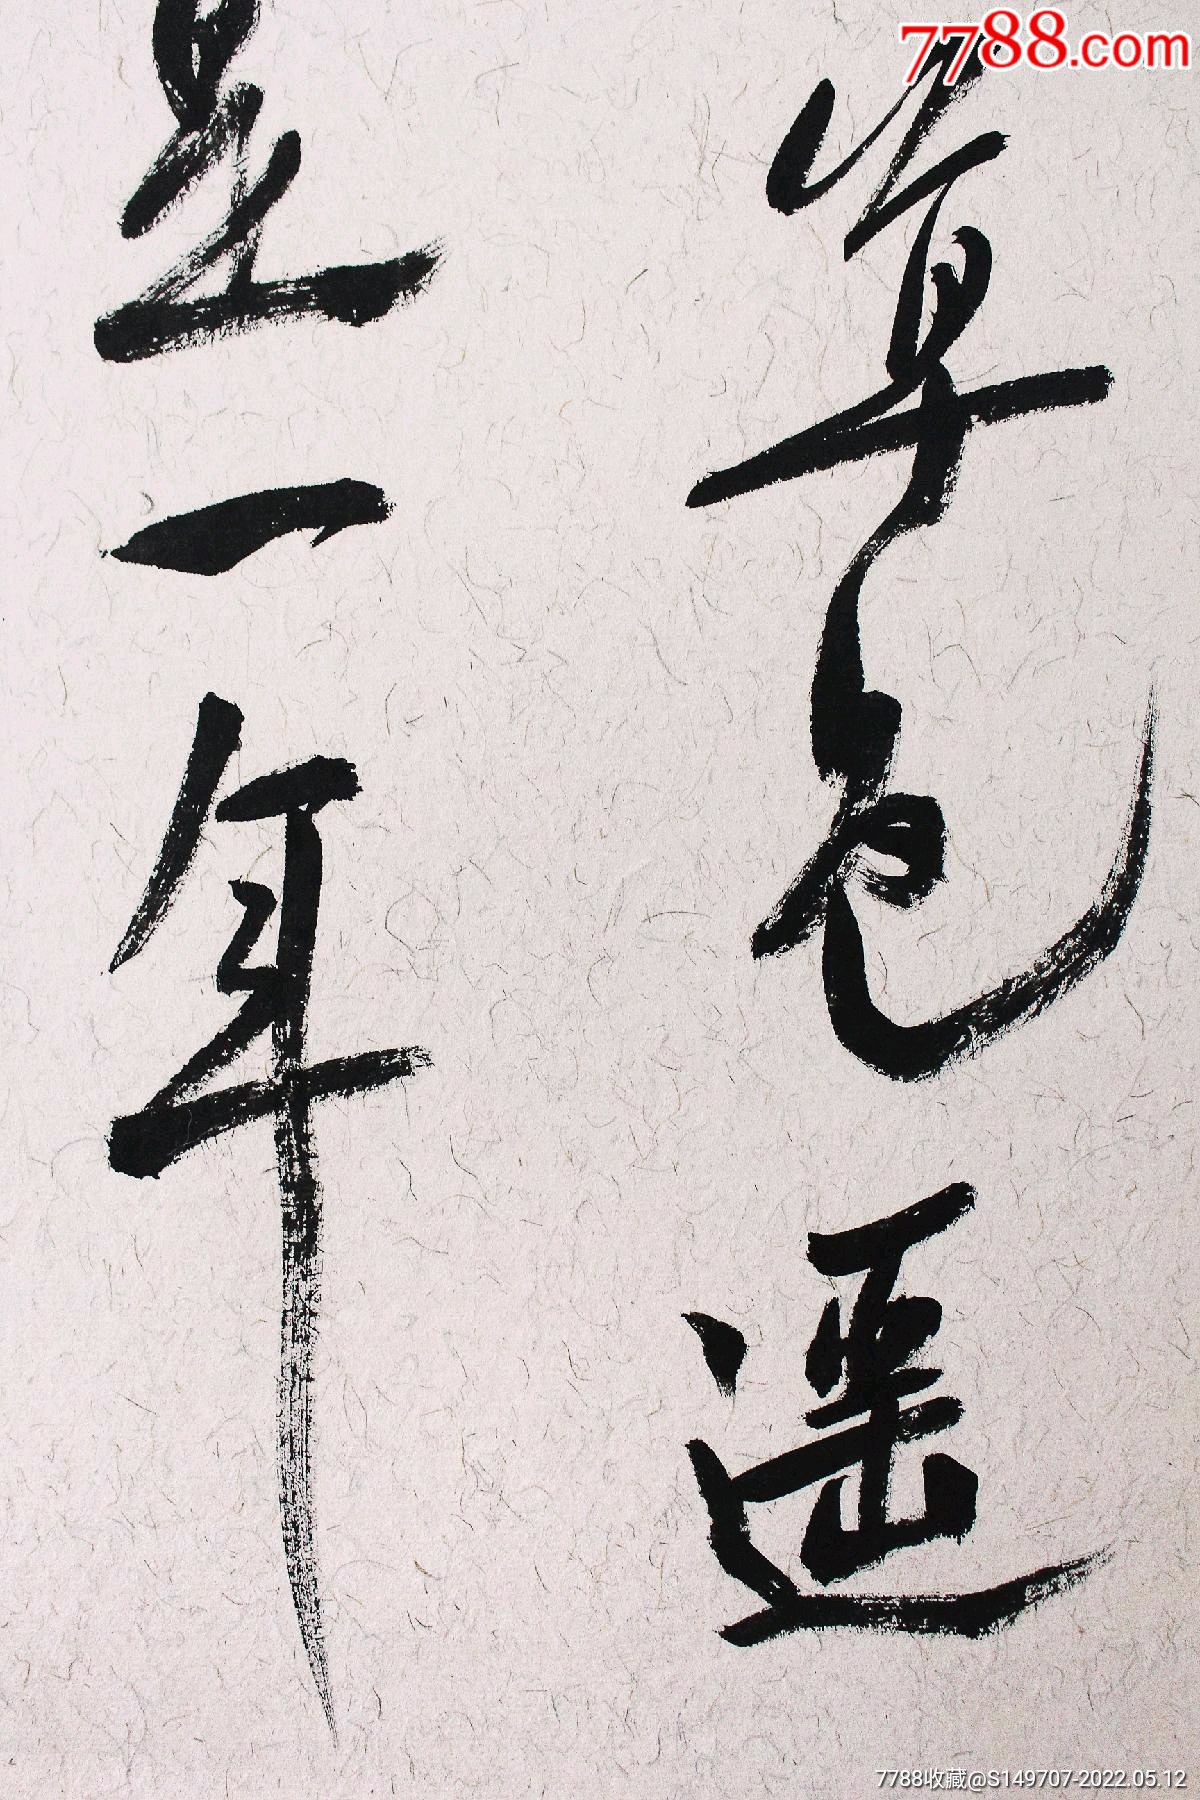 草色遥
是一年
7788.com
7788收藏@S149707-2022.05.12